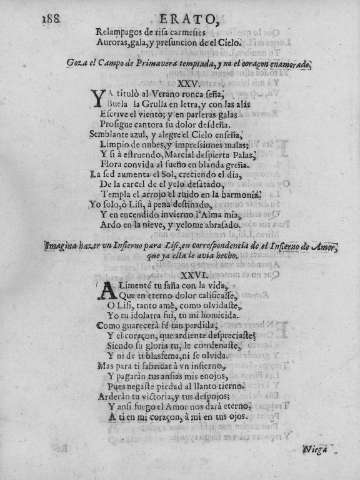 188 ERATO,
Relampagos de risa carmesies
Auroras, gala, y presuncion de el Cielo.
Goza el Campo de Primavera templada, y no el coraçon enamorado.
XXV.
YA tituló al Verano ronca seña,
Buela la Grulla en letra, y con las alas
Escrive el viento; y en parleras galas
Prosigue cantora su dolor desdeña.
Semblante azul, y alegre el Cielo enseña,
Limpio de nubes, y impressiones malas;
Y si à estruendo, Marcial despierta Palas,
Flora convida al sueño en blanda greña.
La sed aumenta el Sol, creciendo el dia,
De la carcel de el yelo desatado,
Templa el arroyo el ruido en la harmonia.
Yo solo, ò Lisi, à pena destinado,
Y en encendido invierno l'Alma mia,
Ardo en la nieve, y yelome abrasado.
Imagina hazer un Infierno para Lisi, en correspondencia de el Infierno de Amor,
que ya ella le avia hecho.
XXVI.
ALimenté tu saña con la vida,
Que en eterno dolor calificaste,
O Lisi, tanto amè, como olvidaste,
Yo tu idolatra fui, tu mi homicida.
Como guarecerá fè tan perdida,
Y el coraçon, que ardiente despreciaste;
Siendo su gloria tu, le condenaste,
Y ni de ti blasfema, ni se olvida.
Mas para ti fabricar à un infierno,
Y pagarán tus ansias mis enojos,
Pues negaste piedad al llanto tierno.
Arderán tu victoria, y tus despojos;
Y ansi fuego el Amor nos dará eterno,
A ti en mi coraçon, à mi en tus ojos.
Niega